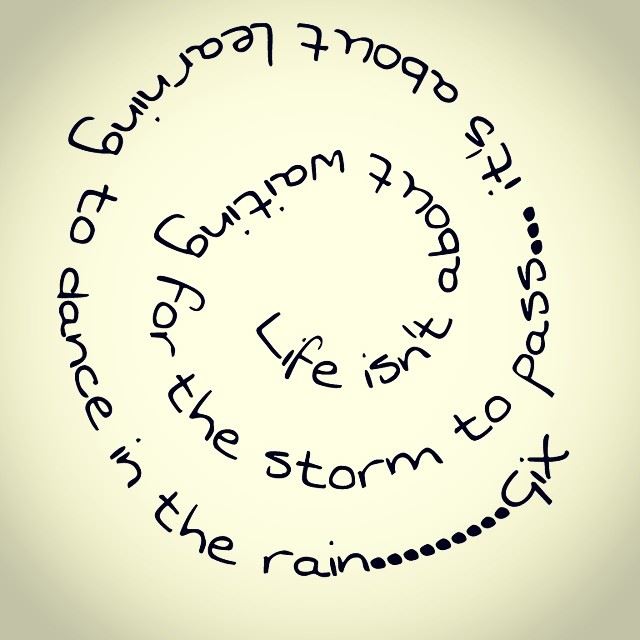 Life isn't about waiting for the storm to pass... it's about learning to dance in the rain..........Git